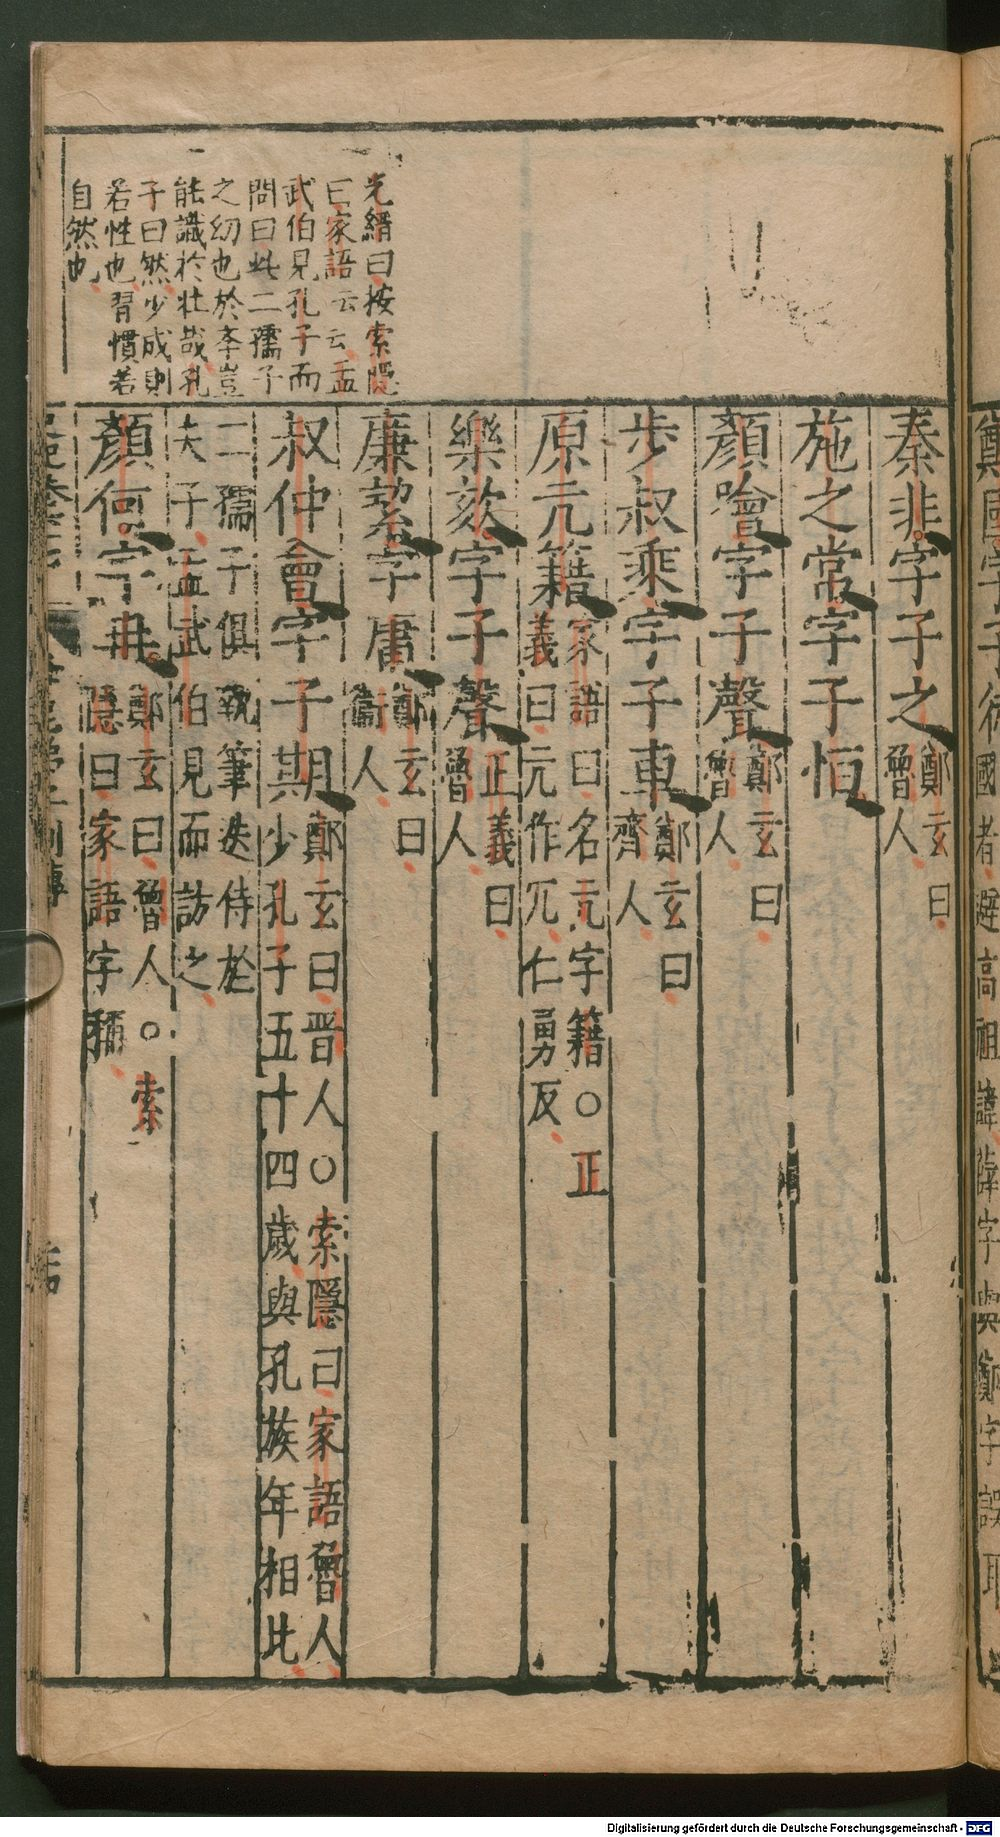 光縉曰按索隱
曰家語云云孟
武伯見孔子而
問曰此二孺子
之幼也於李豈
能識於壯哉孔
子曰然少成則
若性也習慣若
自然也
秦非字子之鄭玄曰
魯人
施之常字子恒
顏噲字子聲鄭玄曰
魯人
步叔乘字子車鄭玄曰
齊人
原元籍家語曰名亢字籍○正
義曰元作冗仁勇反
樂欬字子聲正義曰
魯人
廉絜字庸鄭玄曰
衞人
叔仲會字子期鄭玄曰晋人○索隱曰家語魯人
少孔子五十四歲與孔族年相比
二孺子俱執筆迭侍於
夫子孟武伯見而訪之
顏何字冉鄭玄曰魯人○索
隱曰家語字稱
國者避高祖諱薛字與鄭字誤耳
Digitalisierung gefördert durch die Deutsche Forschungsgemeinschaft - DFG